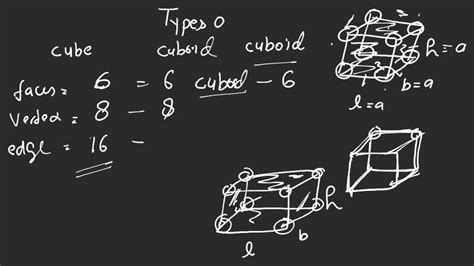 Types o
cube cuboid cuboid
faces = 6 = 6 cuboid - 6
Vertex = 8 - 8
edge = 16 -
h = a
b = a
l = a
h
b
l